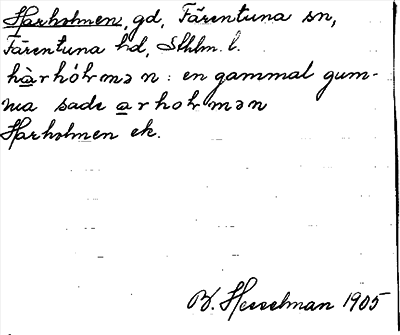 Harholmen, gd, Färentuna sn,
Färentuna hd, Sthlm. l.
hàrhólmən : en gammal gum-
ma sade arholmən
Harholmen ek.
B. Hesselman 1905